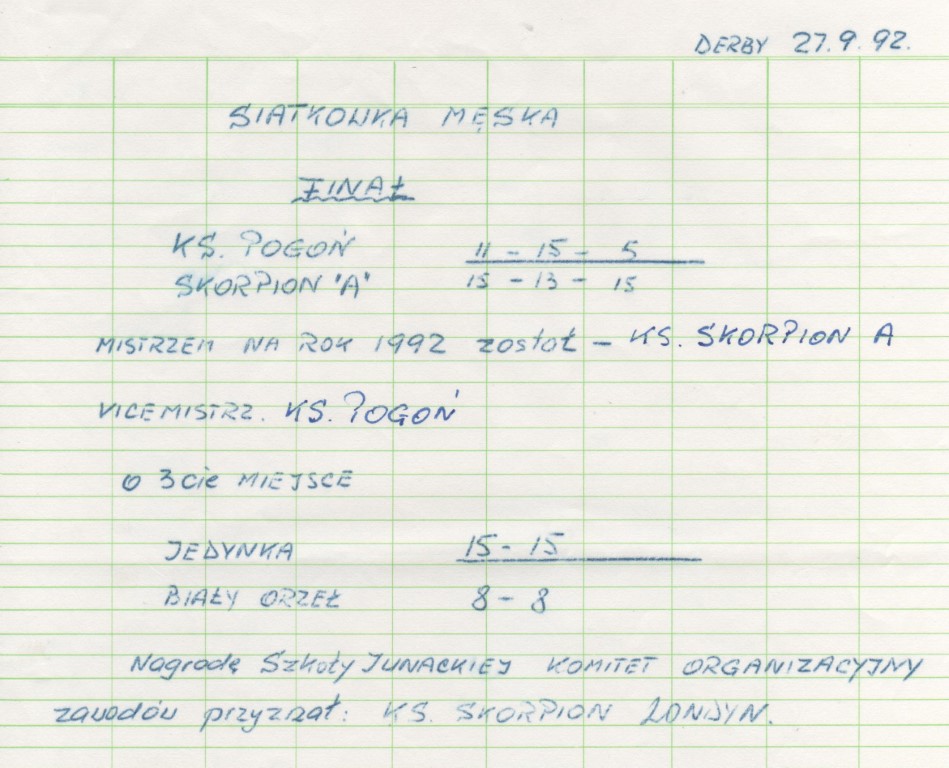 DERBY 27.9.92.
SIATKOWKA MĘSKA
FINAŁ
KS. POGOŃ 11 - 15 - 5
SKORPION "A" 15 - 13 - 15
MISTRZEM NA ROK 1992 został - KS. SKORPION A
VICEMISTRZ. KS. POGOŃ
o 3cie MIEJSCE
JEDYNKA 15 - 15
BIAŁY ORZEŁ 8 - 8
Nagrodę Szkoły JUNACKIEJ KOMITET ORGANIZACYJNY
zawodów przyznał: KS. SKORPION LONDYN.